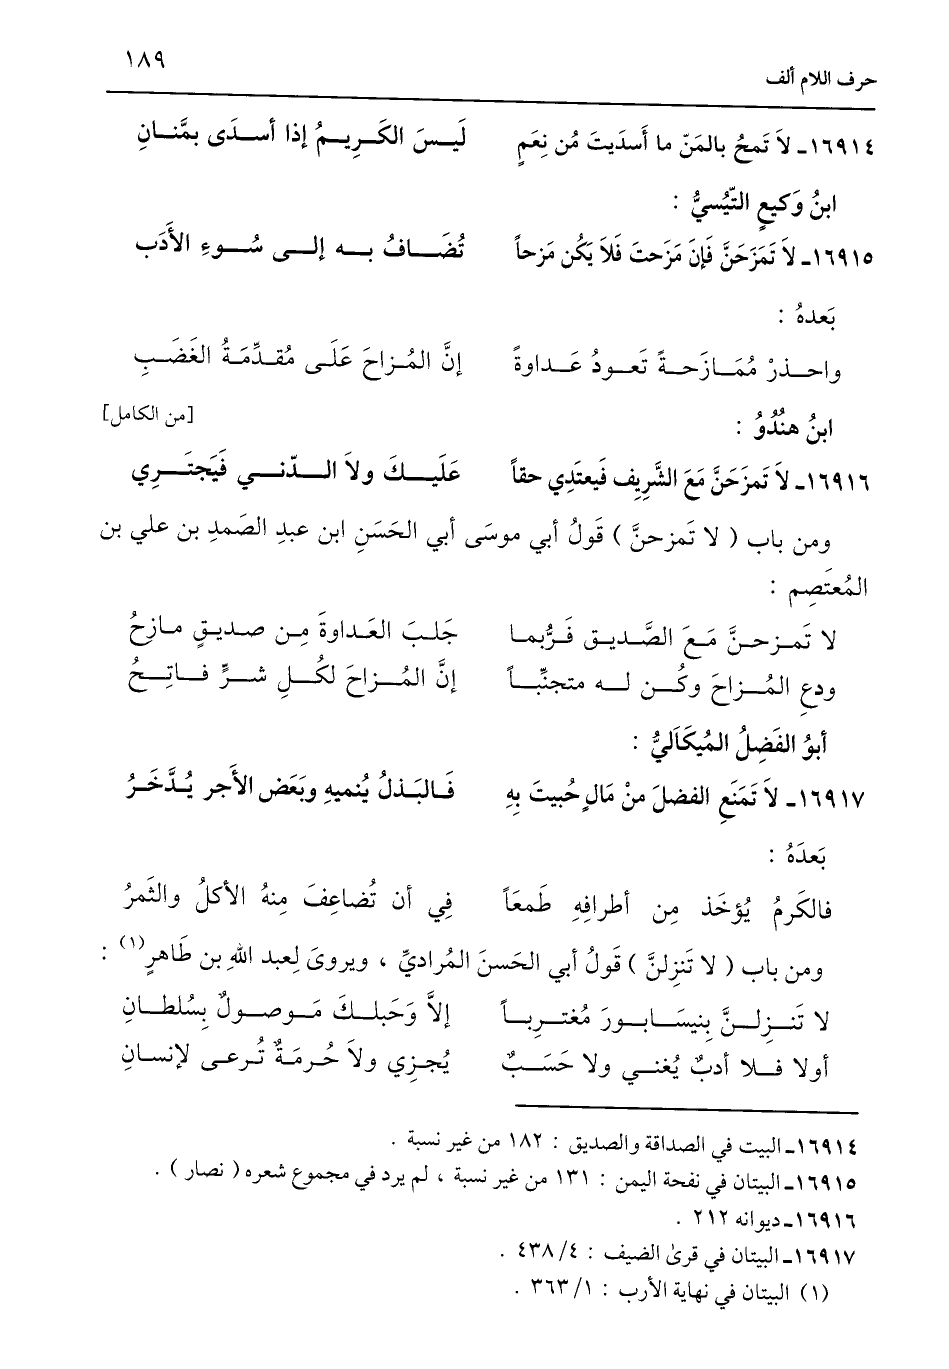 حرف اللام ألف
١٨٩
١٦٩١٤ـ لاَ تَمحُ بالمَنّ ما أَسدَيتَ مُن نِعَمٍ    لَيسَ الكَرِيمُ إذا أسدَى بمَّنانِ
ابنُ وَكيعٍ التّيُسيُّ :
١٦٩١٥ـ لاَ تَمَزَحَنَّ فَإِنَ مَزَحتَ فَلاَ يَكُن مَزحاً    تُضَافُ به إلى سُوءِ الأَدَب
بَعدهُ :
واحذرْ مُمَازَحةً تَعودُ عَداوةً    إنَّ المُزاحَ عَلَى مُقدِّمَةُ الغَضَبِ
ابنُ هنُدُوُ :
[من الكامل]
١٦٩١٦ـ لاَ تَمزَحَنَّ مَعَ الشَّرِيفِ فَيعتَدِي حقاً    عَلَيكَ ولاَ الدّني فَيَجتَرِي
ومن باب ( لا تَمزحنَّ ) قَولُ أبي موسَى أبي الحَسَنِ ابن عبدِ الصَّمدِ بن علي بن
المُعتَصِم :
لا تَمزحنَّ مَعَ الصَّديق فَرُّبما    جَلبَ العَداوةَ مِن صديقٍ مازحُ
ودعِ المُزاحَ وكُن له متجنِّباً    إنَّ المُزاحَ لكُلِ شرٍّ فاتِحُ
أبوُ الفَضِلُ المُيكَاَليُّ :
١٦٩١٧ـ لاَ تَمنَعِ الفضلَ منْ مَالٍ حُبيتَ بِهِ    فَالبَذلُ يُنميهِ وبَعَض الأَجر يُدَّخَرُ
بَعدَهُ :
فالكَرمُ يُؤخَذ مِن أطرافِهِ طَمعَاً    فِي أن تُضاعِفَ مِنهُ الأكلُ والثَمرُ
ومن باب ( لا تَنزِلنَّ ) قَولُ أبي الحَسنَ المُراديِّ ، ويروىَ لِعبد اللهِ بن طَاهرٍ(١) :
لا تَنزِلنَّ بِنيسَابورَ مُغتربا    إلاَّ وَحَبلكَ مَوصولٌ بِسُلطانِ
أولا فلا أدبٌ يُغني ولا حَسَبٌ    يُجزِي ولاَ حُرمَةٌ تُرعى لإنسانِ
١٦٩١٤ـ البيت في الصداقة والصديق : ١٨٢ من غير نسبة .
١٦٩١٥ـ البيتان في نفحة اليمن : ١٣١ من غير نسبة ، لم يرد في مجموع شعره ( نصار ) .
١٦٩١٦ـ ديوانه ٢١٢ .
١٦٩١٧ـ البيتان في قرىٰ الضيف : ٤/ ٤٣٨ .
(١) البيتان في نهاية الأرب : ١/ ٣٦٣ .